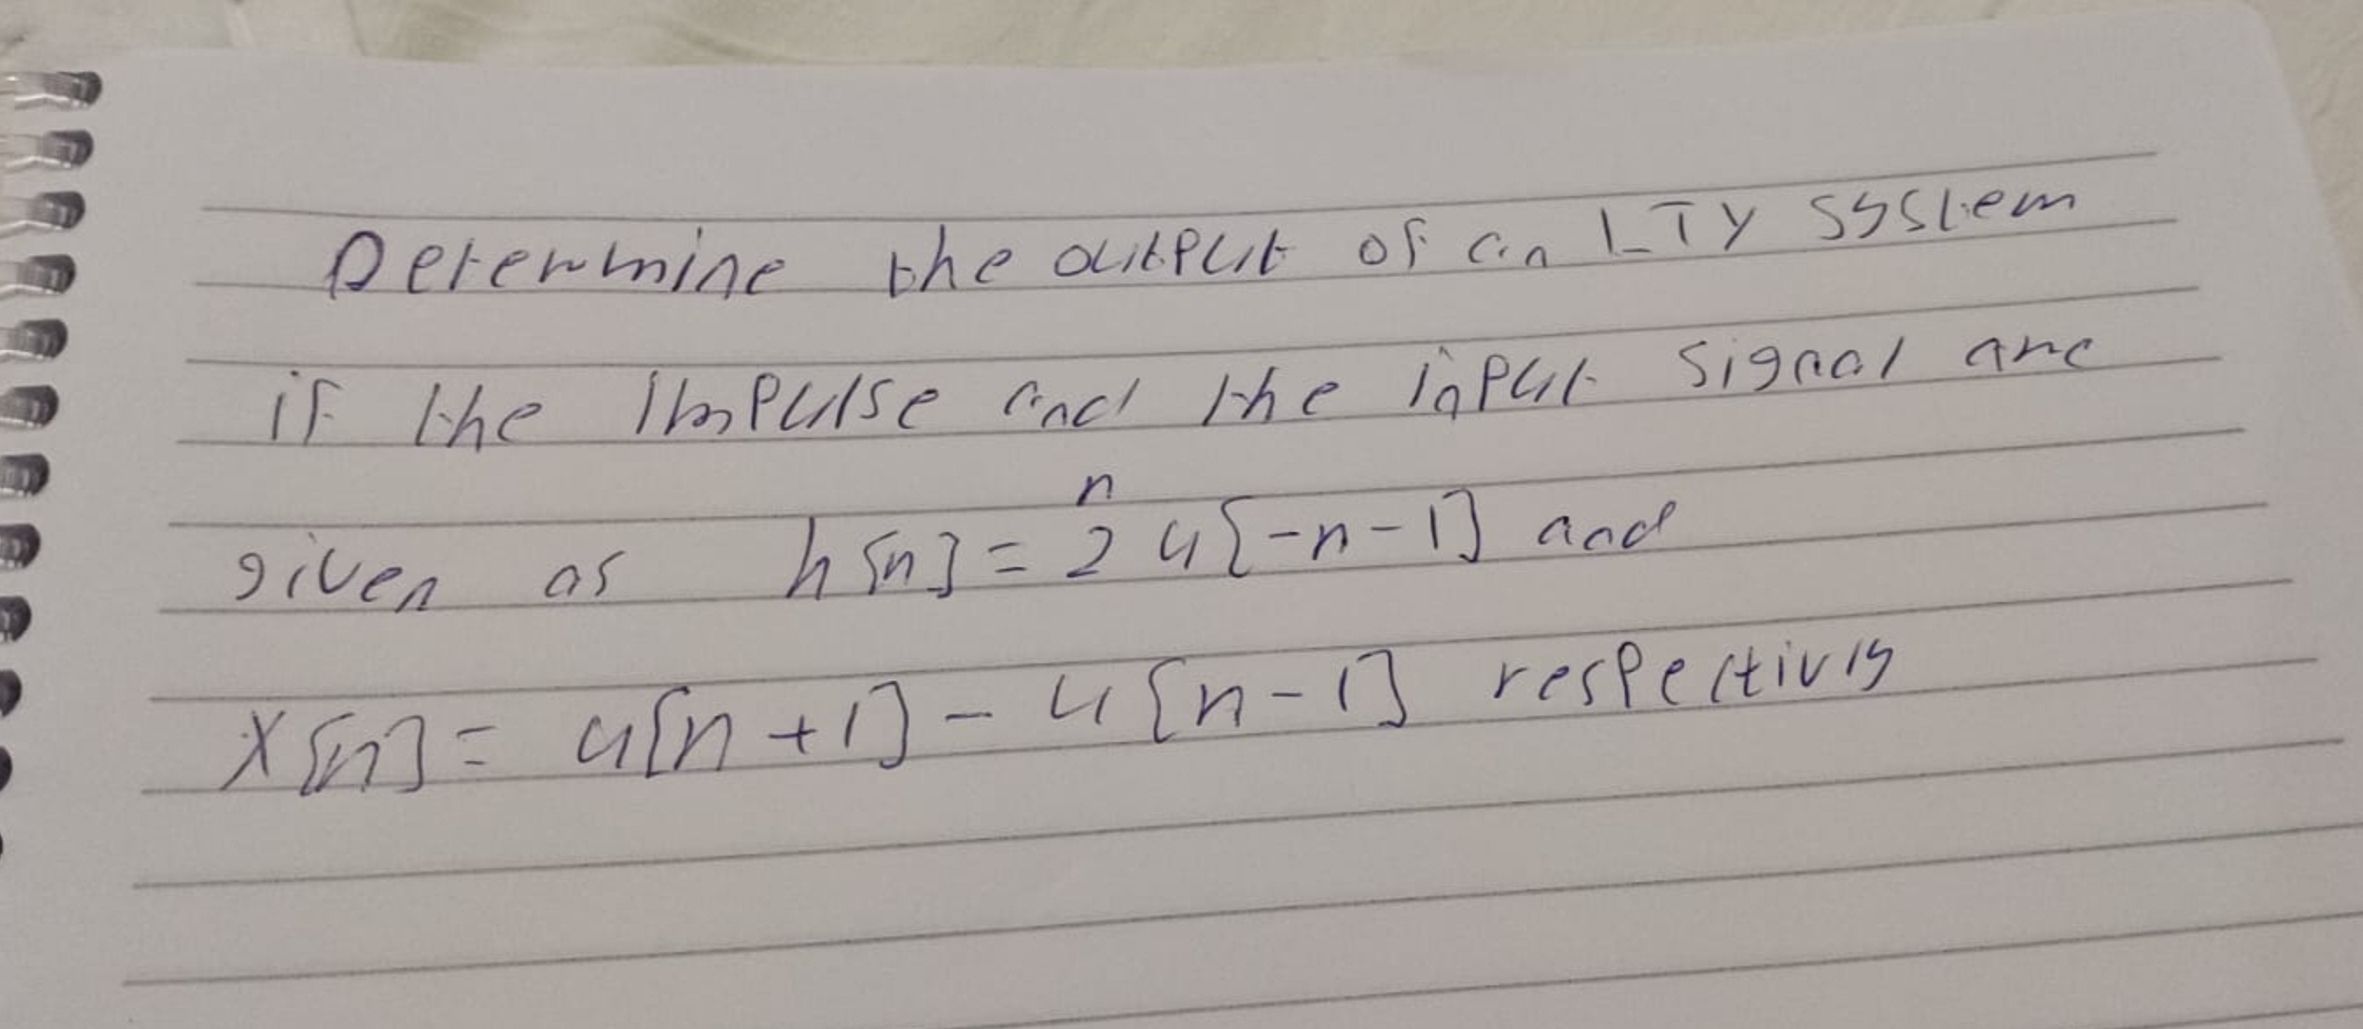 Determine the output of an LTY system
if the Impulse and the input signal are
given as h[n] = 2^n u[-n-1] and
X[n] = u[n+1] - u[n-1] respectivly